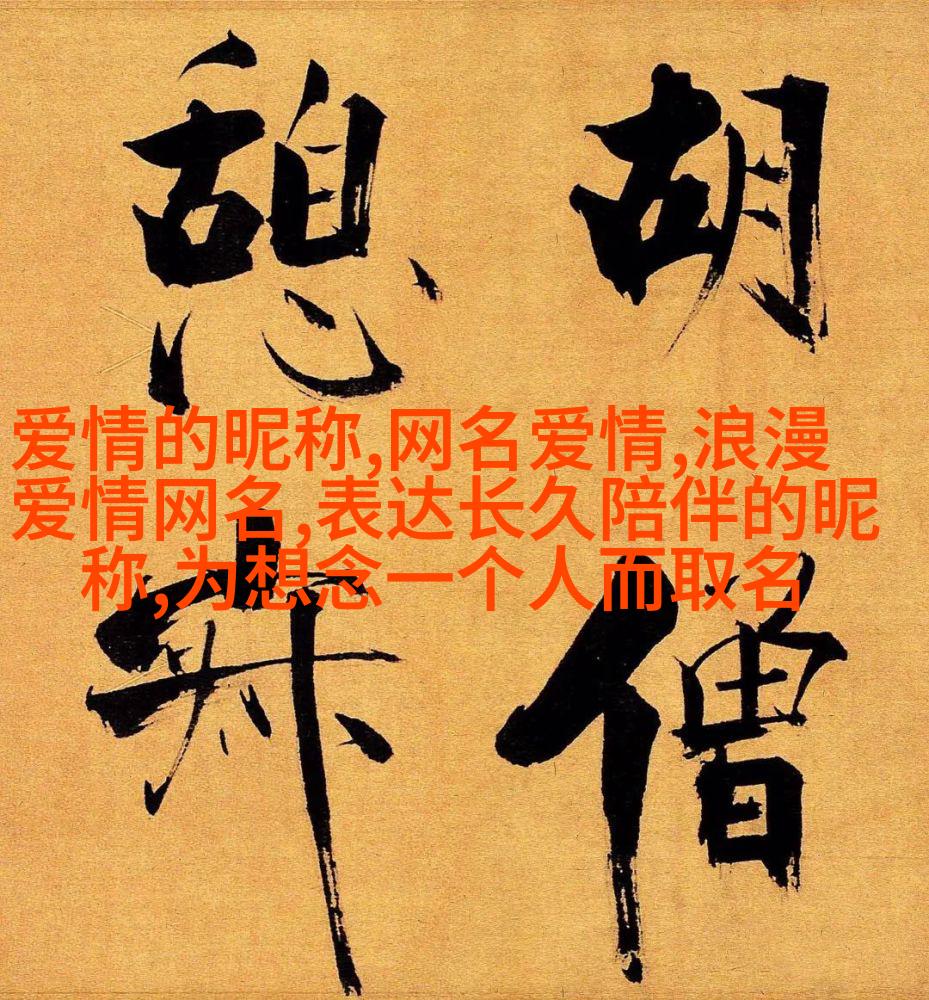 胡僧
憩
爱情的昵称,网名爱情,浪漫
爱情网名,表达长久陪伴的昵
称,为想念一个人而取名